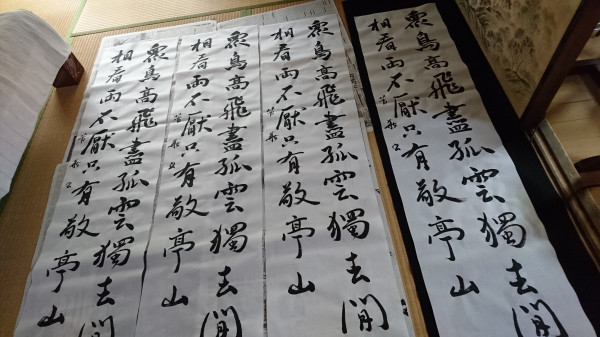 衆鳥高飛盡孤雲獨去閒
相看兩不厭只有敬亭山
衆鳥高飛盡孤雲獨去閒
相看兩不厭只有敬亭山
衆鳥高飛盡孤雲獨去閒
相看兩不厭只有敬亭山
衆鳥高飛盡孤雲獨去閒
相看兩不厭只有敬亭山